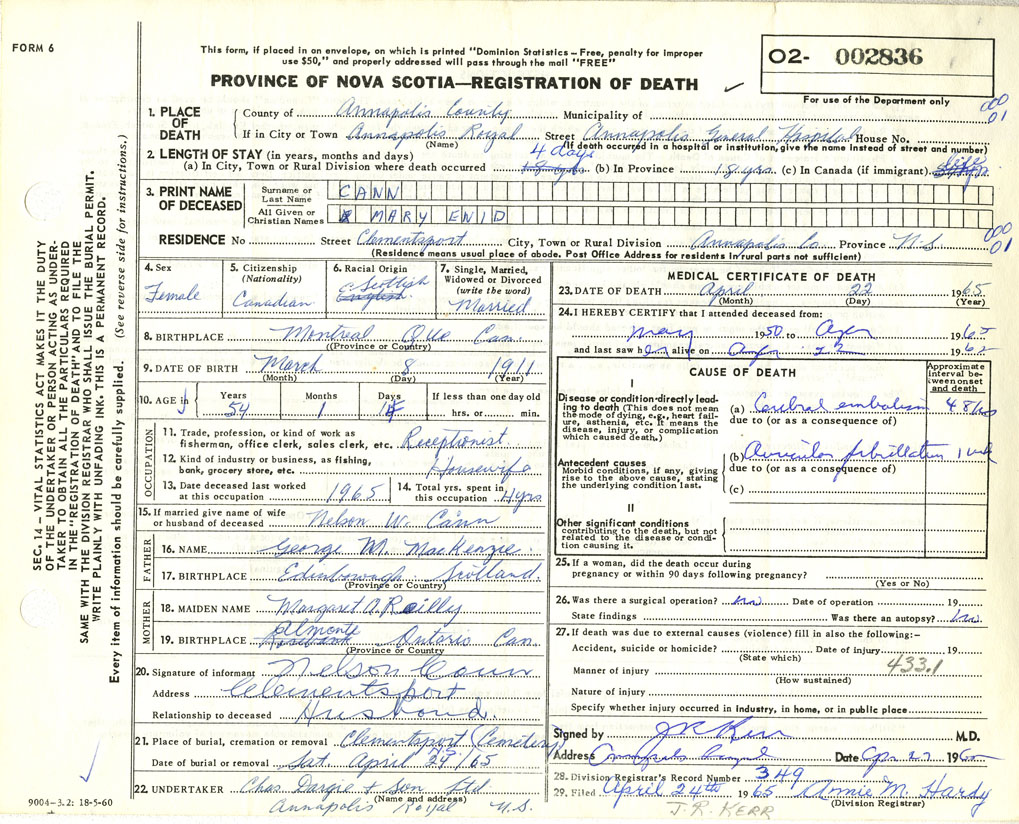 FORM 6
This form, if placed in an envelope, on which is printed "Dominion Statistics—Free, penalty for improper
use $50," and properly addressed will pass through the mail "FREE"
PROVINCE OF NOVA SCOTIA—REGISTRATION OF DEATH
O2- 002836
For use of the Department only
000
01
1. PLACE OF DEATH
County of Annapolis County Municipality of
If in City or Town Annapolis Royal Street Annapolis General Hospital House No.
(Name) (If death occurred in a hospital or institution, give the name instead of street and number)
2. LENGTH OF STAY (in years, months and days)
(a) In City, Town or Rural Division where death occurred 4 days (b) In Province 18 yrs. (c) In Canada (if immigrant) life
3. PRINT NAME OF DECEASED
Surname or Last Name CANN
All Given or Christian Names MARY ENID
RESIDENCE No Street Clementsport City, Town or Rural Division Annapolis Co. Province N.S.
000
01
(Residence means usual place of abode. Post Office Address for residents in rural parts not sufficient)
4. Sex
Female
5. Citizenship
(Nationality)
Canadian
6. Racial Origin
Scottish
English
7. Single, Married, Widowed or Divorced
(write the word)
Married
8. BIRTHPLACE Montreal Que Can.
(Province or Country)
9. DATE OF BIRTH March 8 1911
(Month) (Day) (Year)
10. AGE in
Years Months Days If less than one day old
54 1 hrs. or min.
OCCUPATION
11. Trade, profession, or kind of work as
fisherman, office clerk, sales clerk, etc. Receptionist
12. Kind of industry or business, as fishing,
bank, grocery store, etc. Housewife
13. Date deceased last worked
at this occupation 1965
14. Total yrs. spent in
this occupation 4 yrs
15. If married give name of wife
or husband of deceased Nelson W. Cann
FATHER
16. NAME George M. MacKenzie
17. BIRTHPLACE Edinborough Scotland.
(Province or Country)
MOTHER
18. MAIDEN NAME Margaret A. Reilly
19. BIRTHPLACE Almonte Ontario Can.
(Province or Country)
20. Signature of informant Nelson Cann
Address Clementsport
Relationship to deceased Husband.
21. Place of burial, cremation or removal Clementsport (Cemetery)
N.S.
Date of burial or removal Sat. April 24/65
22. UNDERTAKER Chas. Dargie & Son Ltd.
(Name and address)
Annapolis Royal N.S.
MEDICAL CERTIFICATE OF DEATH
23. DATE OF DEATH April 22 1965
(Month) (Day) (Year)
24. I HEREBY CERTIFY that I attended deceased from:
May 1950 to Apr 1965
and last saw her alive on Apr 22 1965
CAUSE OF DEATH
Approximate interval between onset and death
I
Disease or condition directly leading to death (This does not mean the mode of dying, e.g., heart failure, asthenia, etc. It means the disease, injury, or complication which caused death.)
(a) Cerebral embolism 48 hrs
due to (or as a consequence of)
Antecedent causes
Morbid conditions, if any, giving rise to the above cause, stating the underlying condition last.
(b) Auricular fibrillation 1 wk
due to (or as a consequence of)
(c)
II
Other significant conditions
contributing to the death, but not related to the disease or condition causing it.
25. If a woman, did the death occur during
pregnancy or within 90 days following pregnancy?
(Yes or No)
26. Was there a surgical operation? no Date of operation 19
State findings Was there an autopsy? no
27. If death was due to external causes (violence) fill in also the following:—
Accident, suicide or homicide? Date of injury 19
(State which) 433.1
Manner of injury
(How sustained)
Nature of injury
Specify whether injury occurred in industry, in home, or in public place
Signed by J R Kerr M.D.
Address Annapolis Royal Date Apr 23 1965
28. Division Registrar's Record Number 349
29. Filed April 24th 1965 Annie M. Hardy
(Division Registrar)
J. R. KERR
SEC. 14 — VITAL STATISTICS ACT MAKES IT THE DUTY
OF THE UNDERTAKER OR PERSON ACTING AS UNDER-
TAKER TO OBTAIN ALL THE PARTICULARS REQUIRED
IN THE "REGISTRATION OF DEATH" AND TO FILE THE
SAME WITH THE DIVISION REGISTRAR WHO SHALL ISSUE THE BURIAL PERMIT.
WRITE PLAINLY WITH UNFADING INK. THIS IS A PERMANENT RECORD.
Every item of information should be carefully supplied. (See reverse side for instructions.)
9004—3.2: 18-5-60